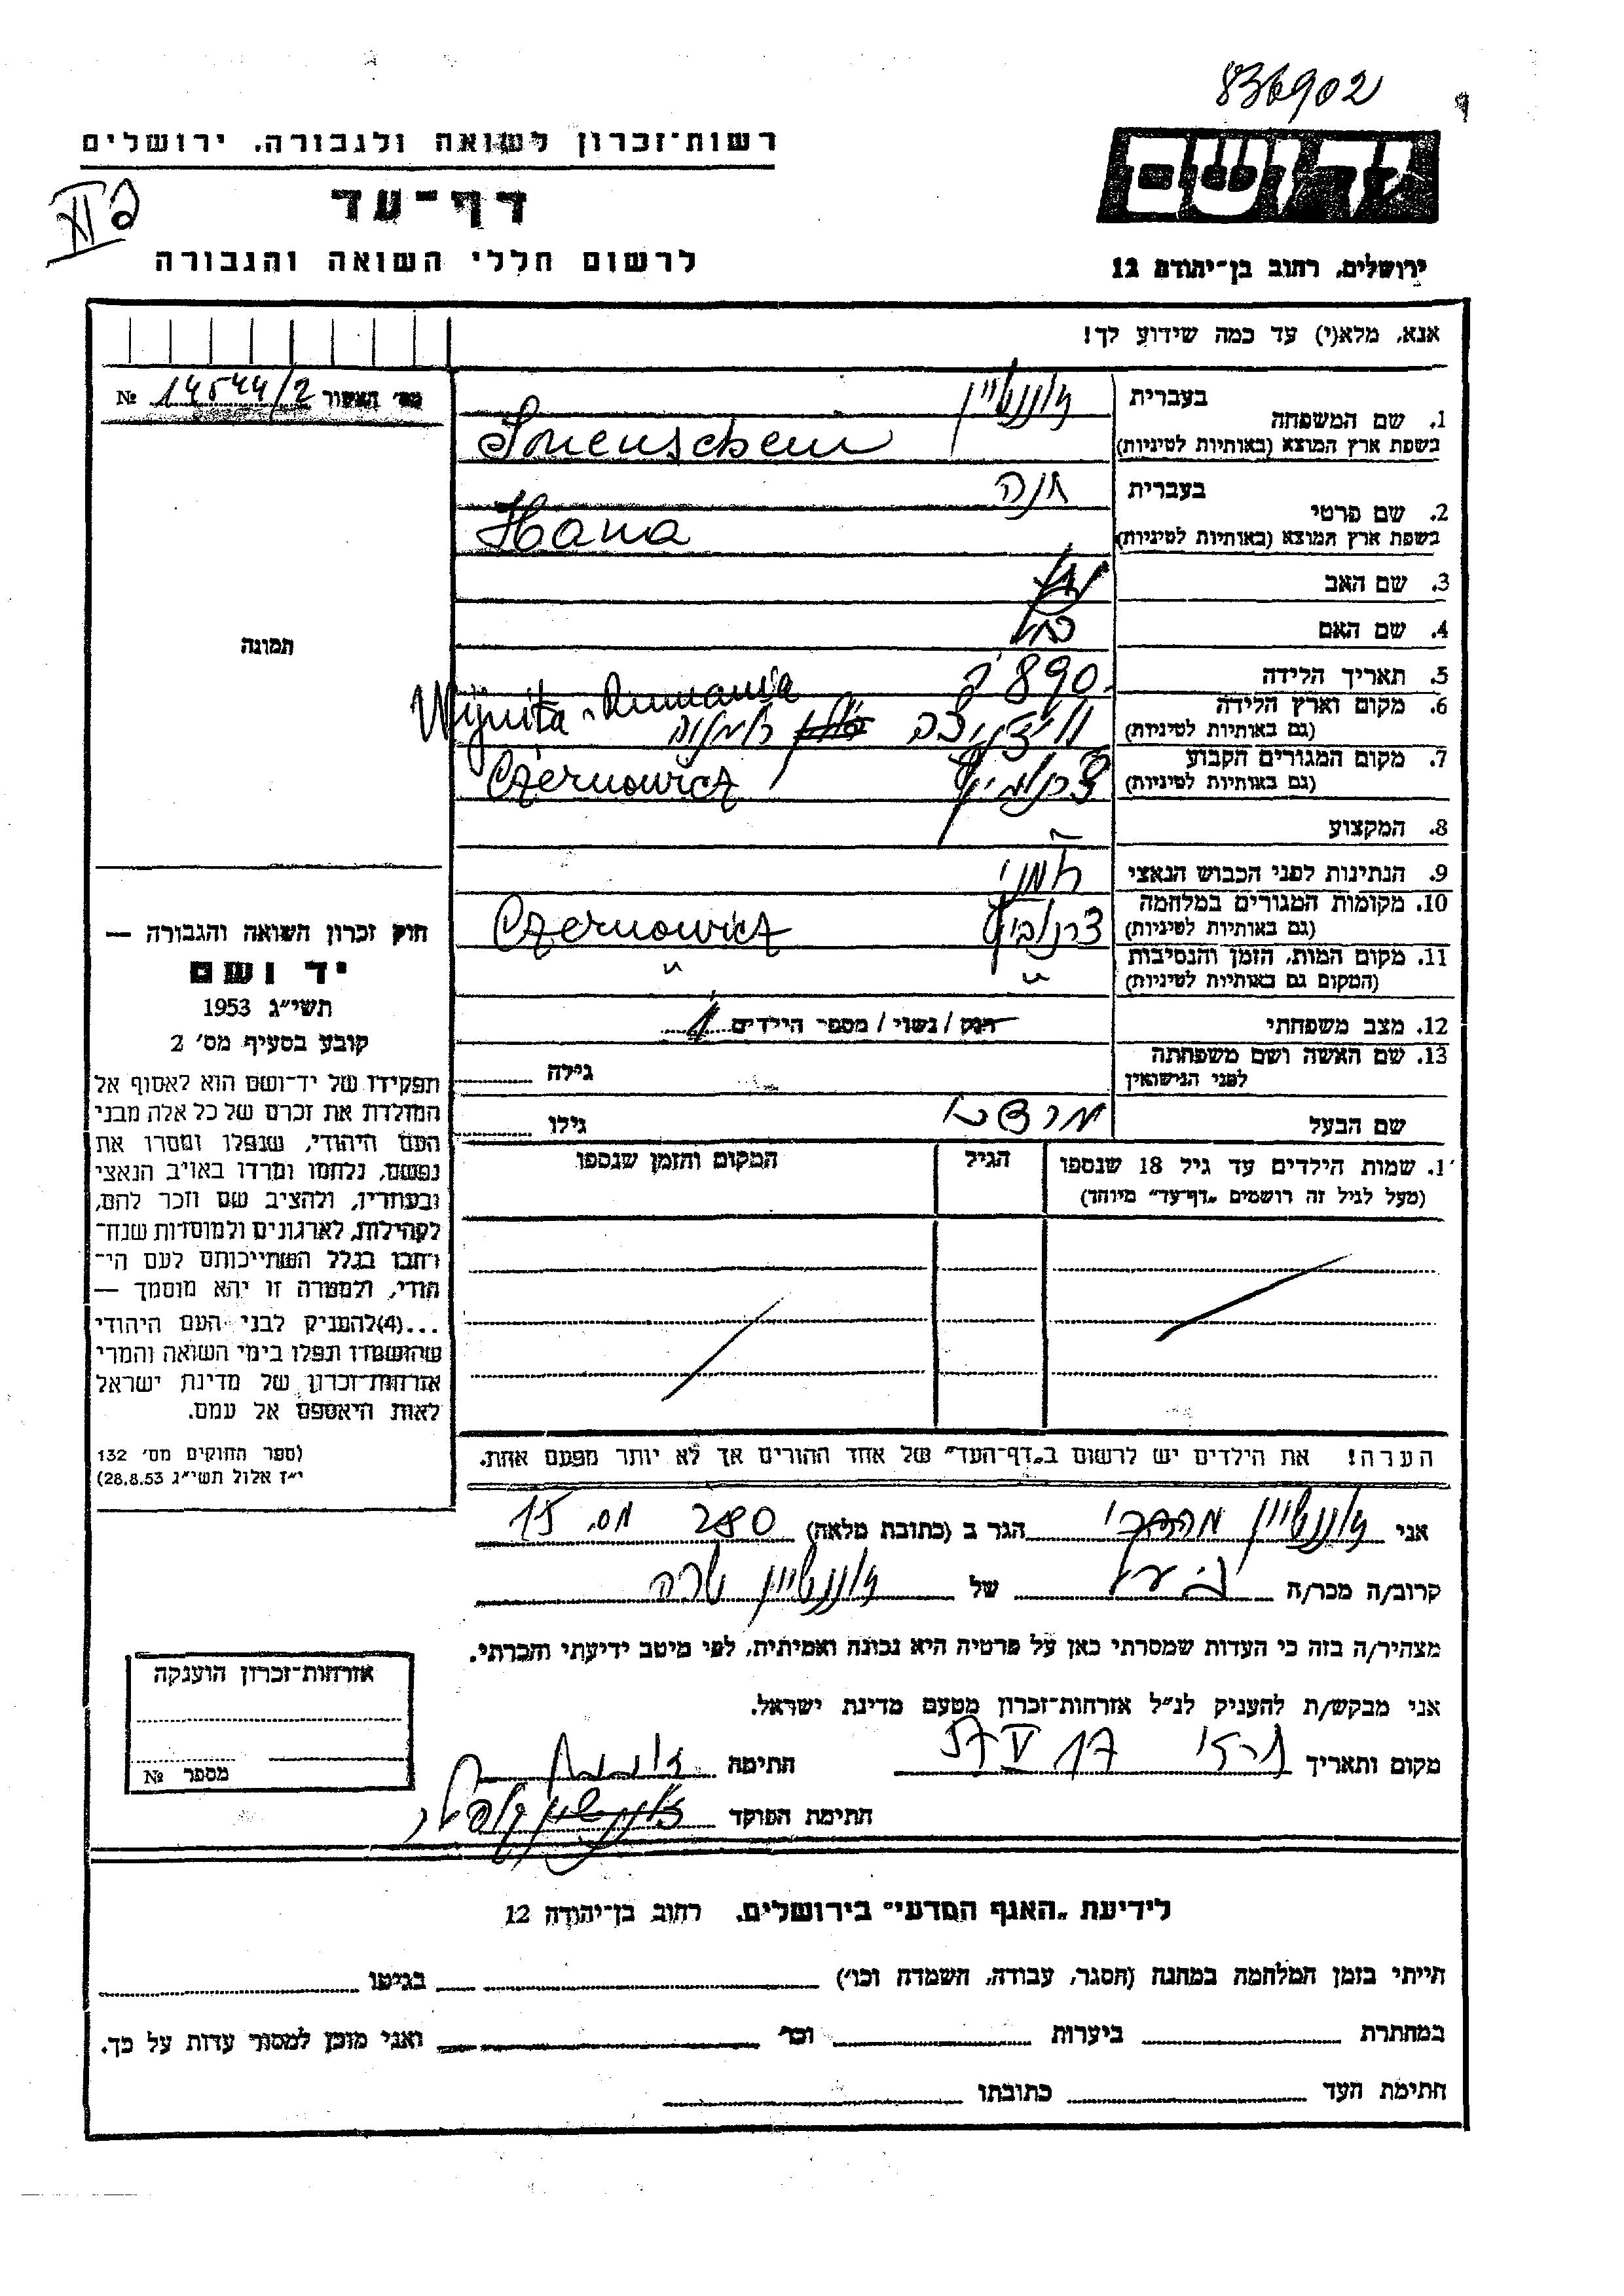 836902
רשות־זכרון לשואה ולגבורה, ירושלים
ד ושם
דף־עד
לרשום חללי השואה והגבורה
ירושלים, רחוב בן־יהודה 12
אנא, מלא(י) עד כמה שידוע לך!
מס׳ האשור № 14544/2
1. שם המשפחה
בעברית
בשפת ארץ המוצא (באותיות לטיניות)
זוננשיין
Sonenschein
2. שם פרטי
בעברית
בשפת ארץ המוצא (באותיות לטיניות)
חנה
Hana
3. שם האב
4. שם האם
5. תאריך הלידה
890
6. מקום וארץ הלידה
(גם באותיות לטיניות)
Wijnita - Rumania
רומניה
7. מקום המגורים הקבוע
(גם באותיות לטיניות)
Czernowicz
8. המקצוע
9. הנתינות לפני הכבוש הנאצי
רומני
10. מקומות המגורים במלחמה
(גם באותיות לטיניות)
צרנוביץ Czernowicz
11. מקום המות, הזמן והנסיבות
(המקום גם באותיות לטיניות)
" "
12. מצב משפחתי
רווק / נשוי / מספר הילדים 1
13. שם האשה ושם משפחתה
לפני הנישואין
גילה
שם הבעל
גילו
1. שמות הילדים עד גיל 18 שנספו
(מעל לגיל זה רושמים „דף־עד” מיוחד)
הגיל
המקום והזמן שנספו
הערה! את הילדים יש לרשום ב„דף־העד” של אחד ההורים אך לא יותר מפעם אחת.
תמונה
חוק זכרון השואה והגבורה —
יד ושם
תשי״ג 1953
קובע בסעיף מס׳ 2
תפקידו של יד־ושם הוא לאסוף אל
המולדת את זכרם של כל אלה מבני
העם היהודי, שנפלו ומסרו את
נפשם, נלחמו ומרדו באויב הנאצי
ובעוזריו, ולהציב שם וזכר להם,
לקהילות, לארגונים ולמוסדות שנח־
רבו בגלל השתייכותם לעם הי־
הודי, ולמטרה זו יהא מוסמך —
...(4)להעניק לבני העם היהודי
שהושמדו ונפלו בימי השואה והמרי
אזרחות־זכרון של מדינת ישראל
לאות היאספם אל עמם.
(ספר החוקים מס׳ 132
י״ז אלול תשי״ג 28.8.53)
אני זוננשיין הגר ב (כתובת מלאה) 280 מס. 15
קרוב/ה מכר/ה של זוננשיין שרה
מצהיר/ה בזה כי העדות שמסרתי כאן על פרטיה היא נכונה ואמיתית, לפי מיטב ידיעתי והכרתי.
אני מבקש/ת להעניק לנ״ל אזרחות־זכרון מטעם מדינת ישראל.
מקום ותאריך 17 V 57 חתימה
חתימת הפוקד
אזרחות־זכרון הוענקה
מספר №
לידיעת „האגף המדעי” בירושלים, רחוב בן־יהודה 12
הייתי בזמן המלחמה במחנה (הסגר, עבודה, השמדה וכו׳) בגיטו
במחתרת ביערות וכו׳ ואני מוכן למסור עדות על כך.
חתימת העד כתובתו